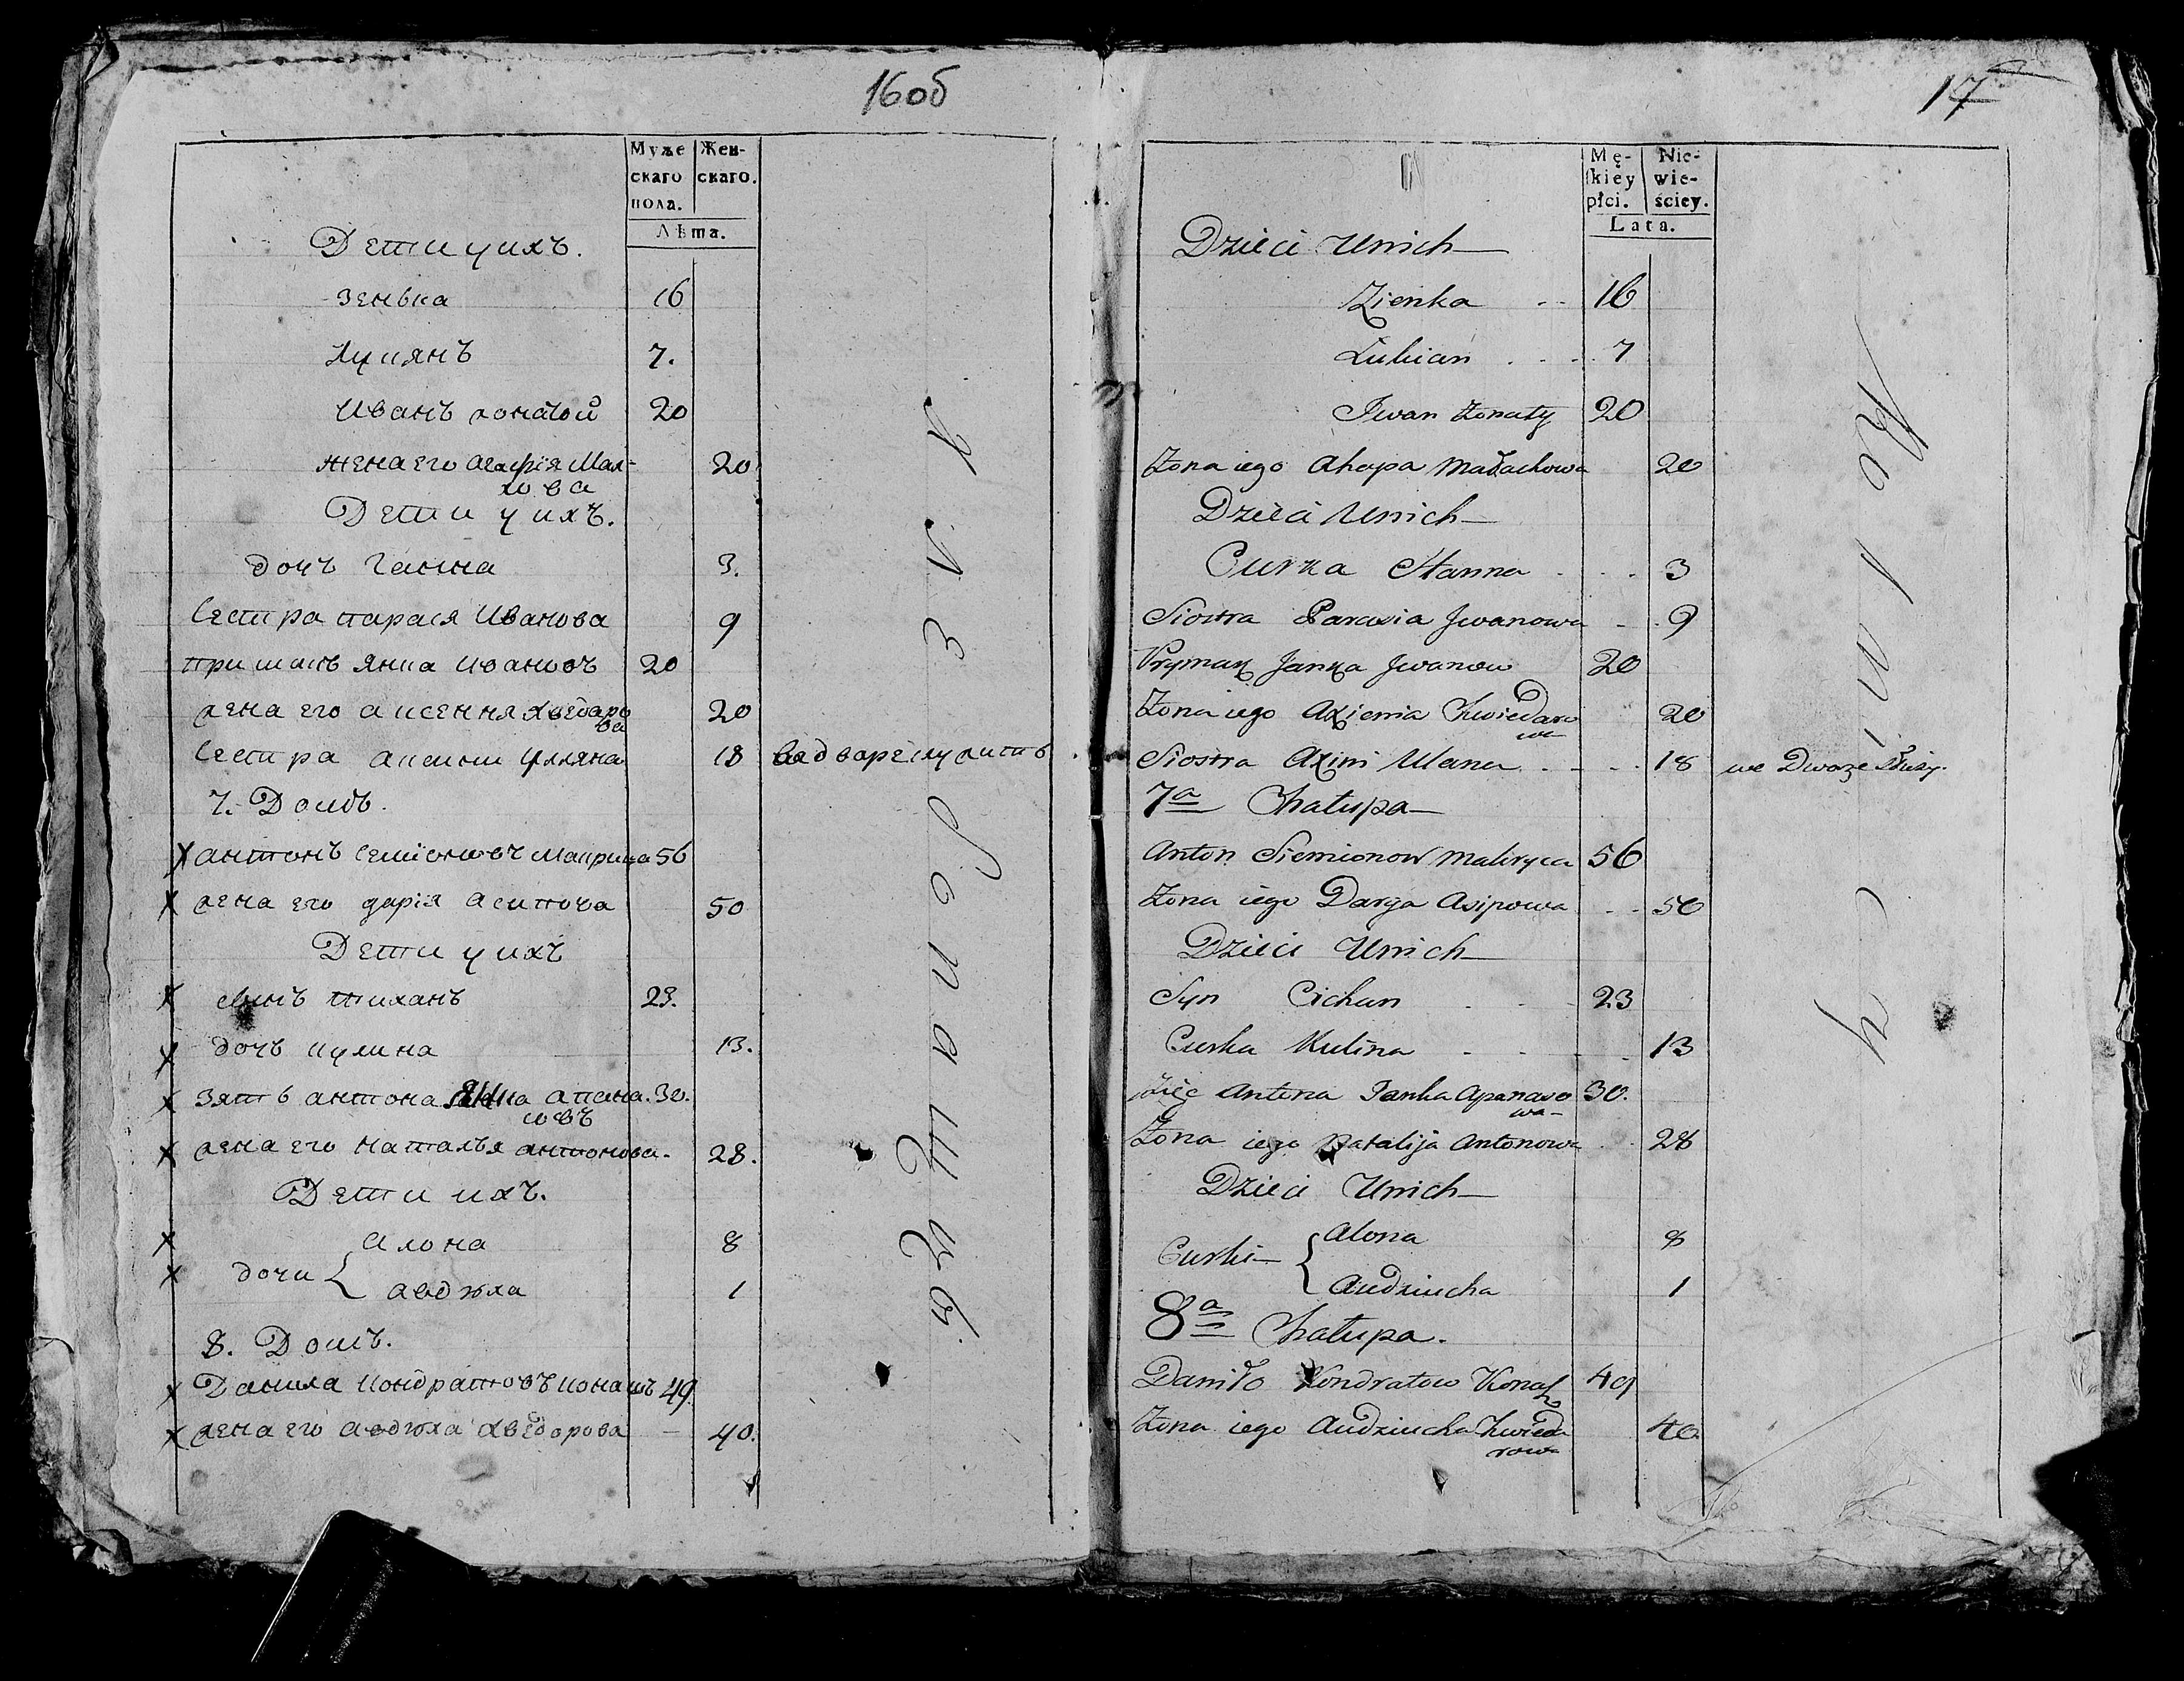 16об
Муже
скаго
пола.
Жен-
скаго.
Лѣта.
Дети у ихъ.
Зенька 16
Лукянъ 7.
Иванъ жонатой 20
жена его Агафія Мал-
хова 20
Дети у ихъ.
дочъ Ганна 3.
Сестра парася Иванова 9
примакъ Янка Ивановъ 20
жена его аксення хведаро
ва 20
Сестра аксини Уляна 18 ва дваре служитъ
7. Домъ.
х антонъ Семіоновъ Макрица 56
х жена его дарія асипова 50
Дети у ихъ
х сынъ тиханъ 23.
х дочъ кулина 13.
х зять антона Янка апана. 30.
новъ
х жена его наталья антонова. 28.
Дети ихъ.
х алона 8
х дочи { авдюха 1
8. Домъ.
х Данила кондратовъ конашъ 49.
х жена его авдюха хведорова — 40.
17
Mę-
skiey
płci.
Nie-
wie-
ściey.
Lata.
Dzieci Unich
Zienka 16
Łukian 7
Iwan żonaty 20
Żona iego Ahapa Małachowa 20
Dzieci Unich
Curka Hanna 3
Siostra Parasia Jwanowa 9
Prymak Janka Jwanow 20
Żona iego Axienia Chwiedaro
wa 20
Siostra Axini Ulana 18 we Dworze służy.
7a Chałupa
Anton Siemionow Makryca 56
Żona iego Darya Asipowa 50
Dzieci Unich
Syn Cichan 23
Curka Kulina 13
Zięć Antona Janka Apanaso 30.
wa
Żona iego Natalija Antonowa 28
Dzieci Unich
Curki { Alona 8
Audziucha 1
8a Chałupa.
Daniło Kondratow Konasz 49
Żona iego Audziucha Chwieda
rowa 40